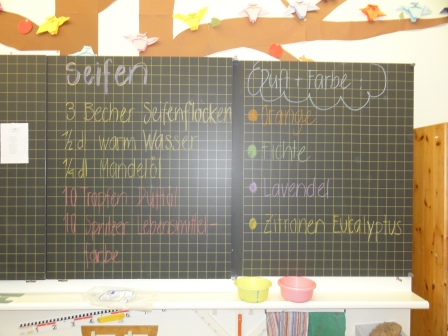 Seifen
3 Becher Seifenflocken
½ dl warm Wasser
¼ dl Mandelöl
10 Tropfen Duftöl
10 Spritzer Lebensmittel-
farbe
Duft + Farbe:
Orange
Fichte
Lavendel
Zitronen Eukalyptus